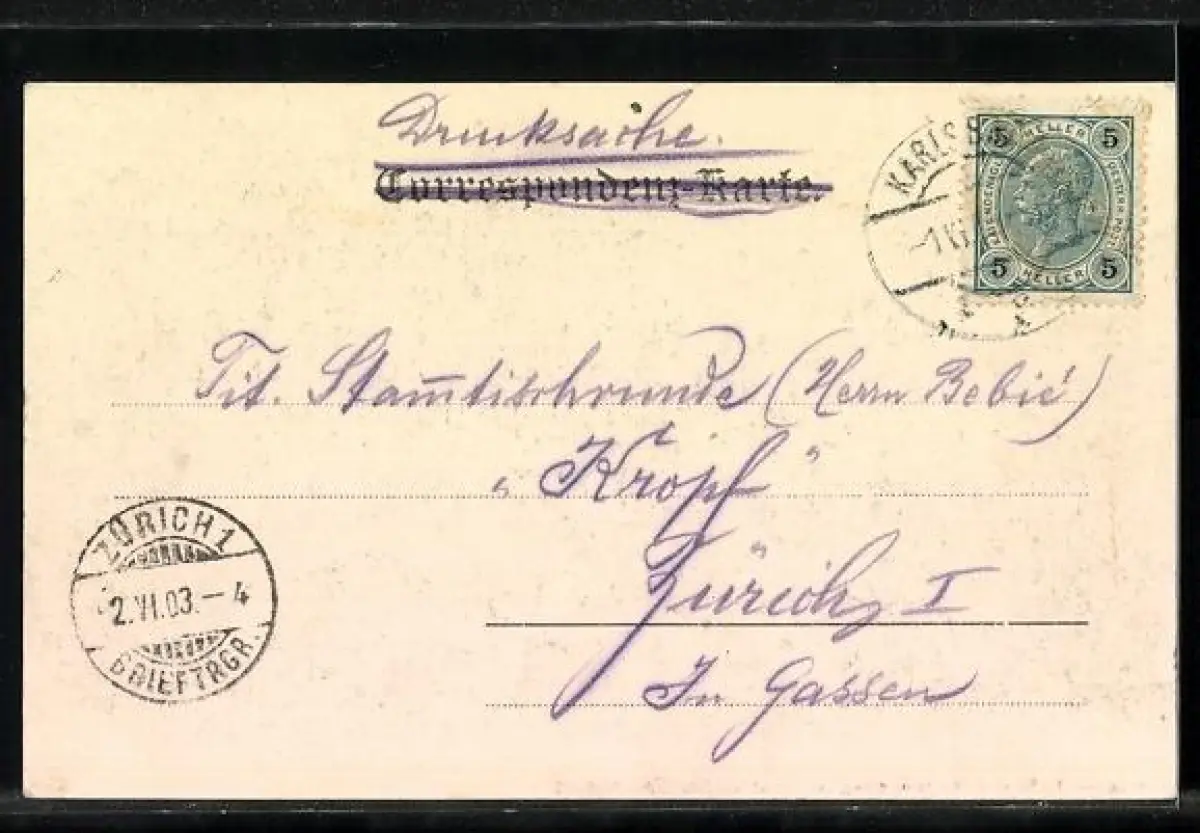 Drucksache.
Correspondenz-Karte.
KARLSB
-1 VI
5 HELLER 5
5 HELLER 5
Tit. Stam̄tischrunde (Herrn Bebié)
"Kropf"
Zürich I
In Gassen
ZÜRICH 1
2.VI.03.-4
BRIEFTRGR.